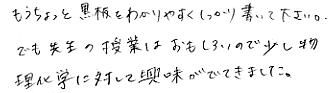 もうちょっと黒板をわかりやすくしっかり書いて下さい。
でも先生の授業はおもしろいので少し物
理化学に対して興味がでてきました。